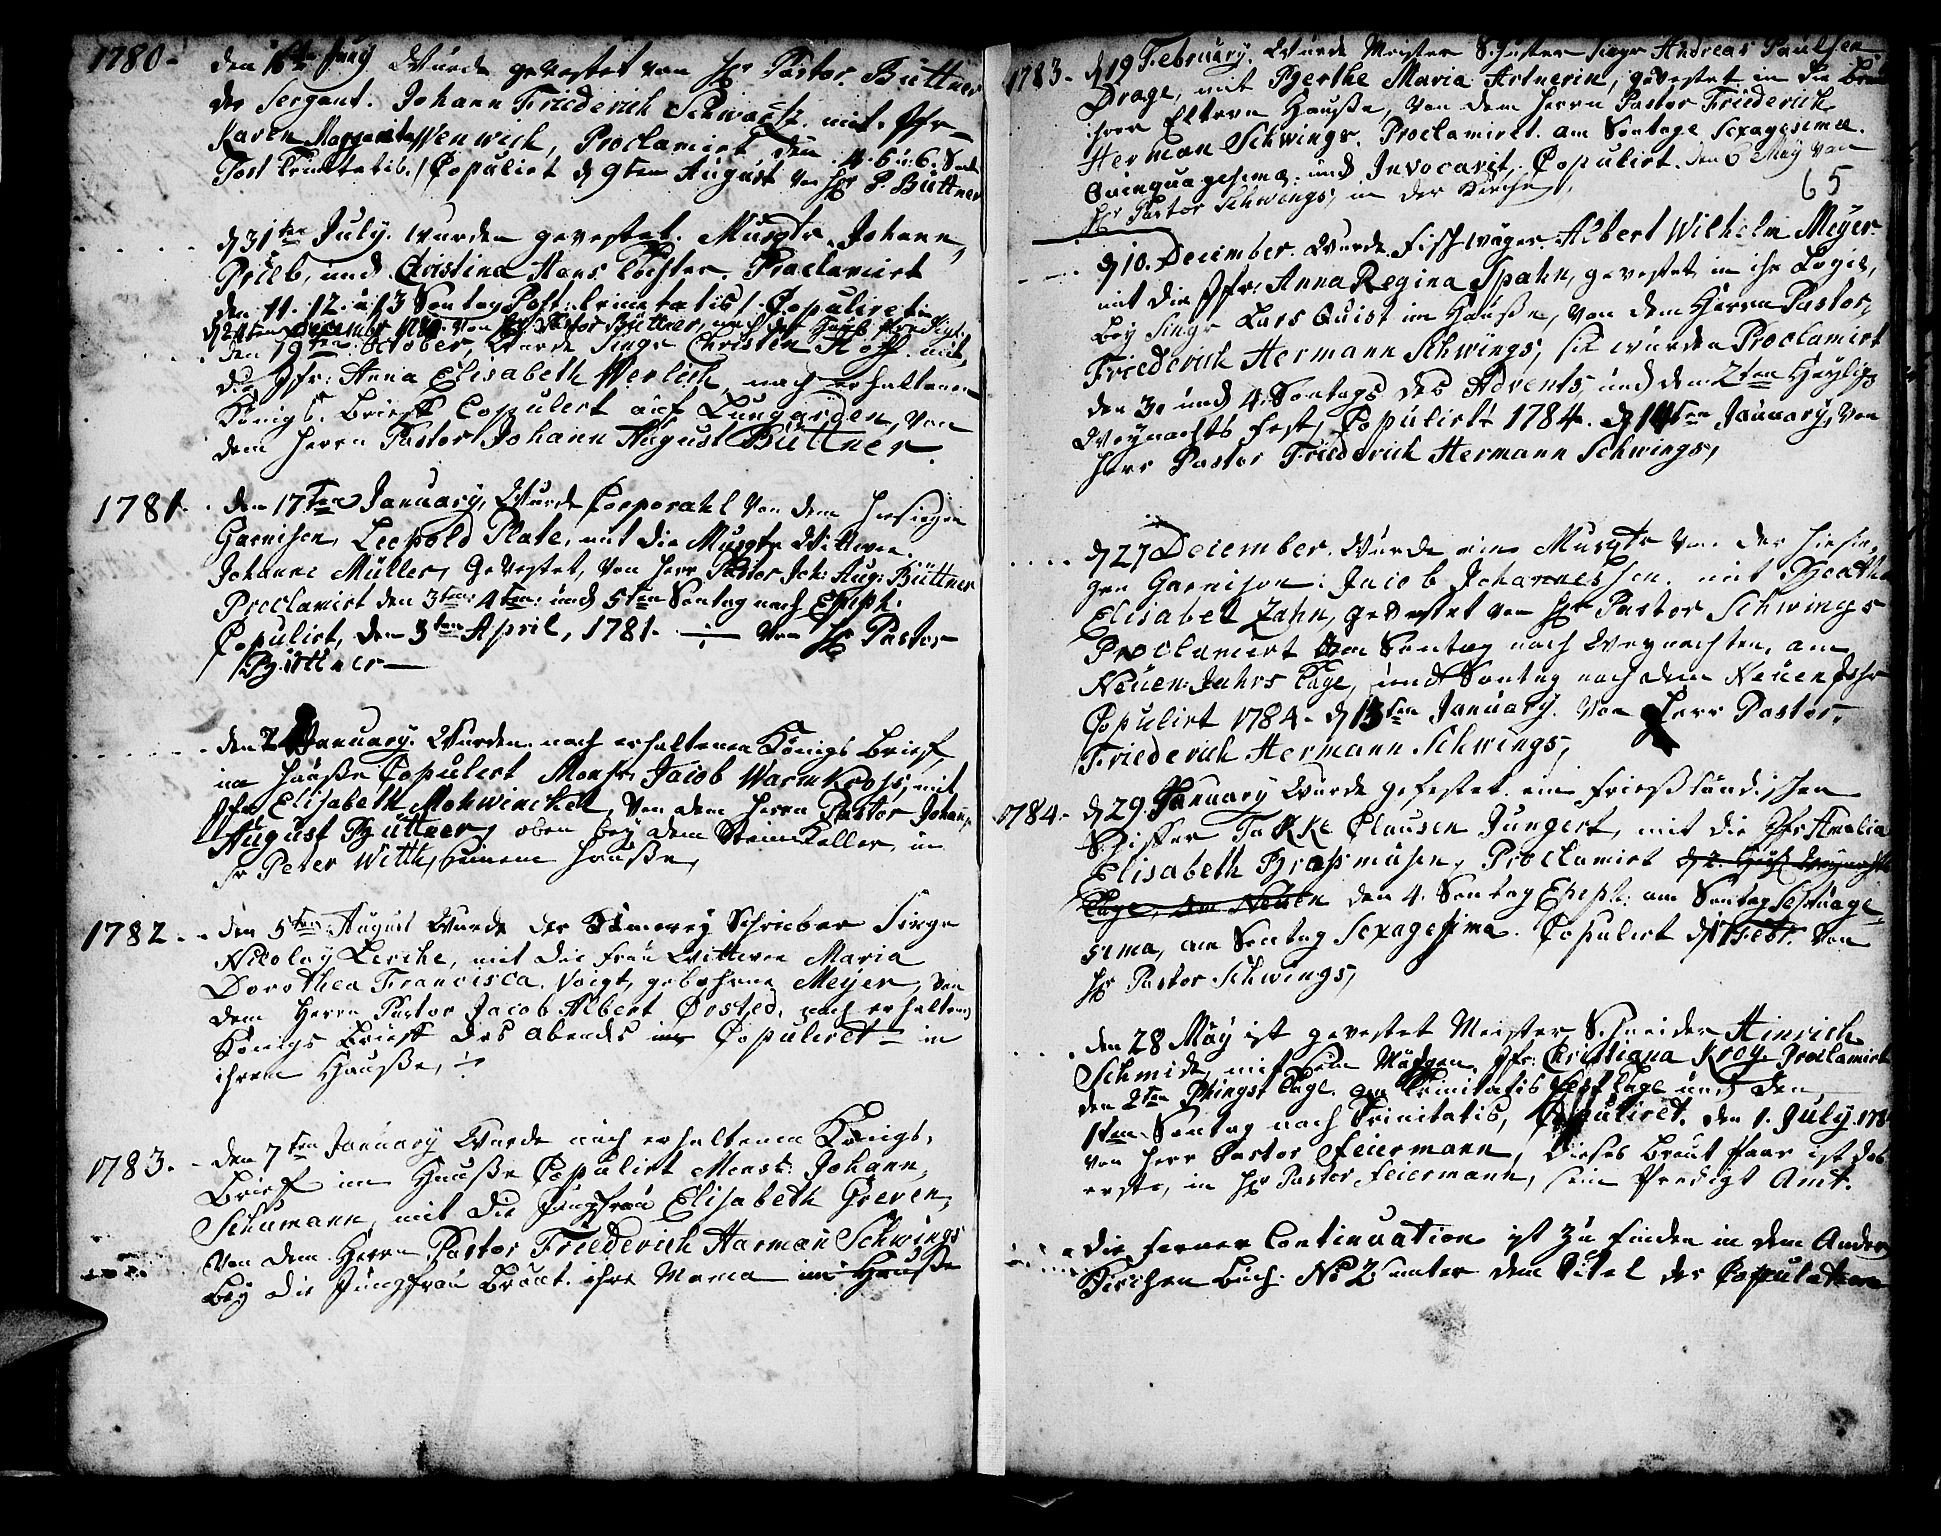 1780. den 16ten Juny Wurde gevestet von Hr Pastor Büttner
der Sergant. Johann Friederich Schwartz mit Jfr
Karen Margareta Wenwich, Proclamirt den 4. 5 u: 6. Sont
Post Trinitatis. / Copulirt d 9ten August von Hr P. Büttner
d 31ten July. wurden gevestet. Musqtr. Johann
Prieb, und Christina Hans Tochter. Proclamirt
den 11. 12. u 13 Sontag Post: trinitatis /. Copuliret
d 24ten December 1780. von Hr Pastor Büttner, nach der Predigt.
den 19ten October, Wurde Singr Christen Hoff mit
die Jfr: Anna Elisabeth Werlich, nach erhaltenen
Königs. Brieff Copulert auf Lungaarden, von
dem Herrn Pastor Johann August Büttner.
1781. den 17ten January, Wurde Corporahl von dem hiesigen
Garnison, Leopold Plate, mit die Musqtr Wittwe.
Johanne Müller, Gevestet, von Herr Pastor Joh: Aug: Büttner
Proclamirt den 3ten: 4ten: und 5ten Sontag nach Epiph:
Copulirt, den 3ten April, 1781. von Hr Pastor
Büttner
den January. Wurden nach erhaltenen Königs Brief,
im Hauße Copulert Monsr. Jacob Warnkrohs, mit
Jfr Elisabeth Mohwinckel, von dem Herrn Pastor Johann
August Büttner, oben bey dem Wein Keller, in
Sr Peter Witth, seinem Hauße,
1782. den 5ten August Wurde der Schreiber Sirge
Nicolay Lerche, mit die Frau Wittwe Maria
Dorothea Francisca. Voigt, gebohrne Meyer, von
dem Herrn Pastor Jacob Albert Örsted, nach erhaltene
Königs Brieff des Abends Copuliret in
ihrem Hauße,
1783. den 7ten January Wurde nach erhaltenem Königs,
Brieff im Hauße Copulirt Monsr: Johann
Schumann, mit die Jungfrau Elisabeth Greven,
von dem Herrn Pastor Friederich Harman Schwings
bey die Jungfrau Braut. ihre Mama im Hauße
1783. d 19 February. Wurde Meister Schuster Singr Andreas Paulsen
Drage, mit Bjerthe Maria Artnerin, gevestet in die Braut
ihrer Eltern Hauße, von dem Herrn Pastor Friederich
Herman Schwings. Proclamiret am Sontage Sexagesimæ.
Quinquagesima. und Invocavit. Copulirt. den 6 May von
Hr Pastor Schwings, in der Kirche,
65
d 10. December. Wurde Fischwäger. Albert Wilhelm Meyer
mit die Jfr: Anna Regina Spahn, gevestet in ihr Logie,
bey Singr Lars Quist im Hauße, von dem Herrn Pastor,
Friederich Hermann Schwings, sie wurden Proclamirt
den 3. und 4. Sontags des Advents, und dem 2ten Heylig
Weynachts fest, Copulirt 1784. d 14ten January, von
Herr Pastor Friederich Hermann Schwings,
d 27 December. Wurde eine Musqtr von der hiesi
gen Garnison: Jacob Johannessen. mit Beatha
Elisabet Zahn, gevestet von Hr Pastor Schwings
Proclamert Sontag nach Weynachten, am
Neuen-Jahrs Tage, und Sontag nach dem Neuen Jahr
Copulirt 1784. d 13ten January. von Herr Pastor,
Friederich Hermann Schwings,
1784. d 29. January Wurde gefestet. ein Frießländischen
Schiffer Takke Clausen Jungert, mit die Jfr Amalia
Elisabeth Brasmusen, Proclamirt d 2. Heyl Weynachts
Tage, Neuen den 4. Sontag Epiph: am Sontag Septuage
sima, am Sontag Sexagesima. Copulirt d 17 Febr. von
Hr Pastor Schwings,
den 28 May ist gevestet Meister Schneider Hinrich
Schmidt, mit sein Mädgen, Jfr: Christiana Kroy Proclamirt
den 2ten Pfingst Tage. am Trinitatis Fest Tage und den
1ten Sontag nach Trinitatis, Copuliret. den 1. July 178
von Herr Pastor Feiermann, dieses Braut Paar ist das
erste, in Hr Pastor Feiermann, sein Predigt Amt.
die ferner Continuation ist zu finden in dem Ander
Kirchen Buch. No 2 unter dem Titel der Copulation